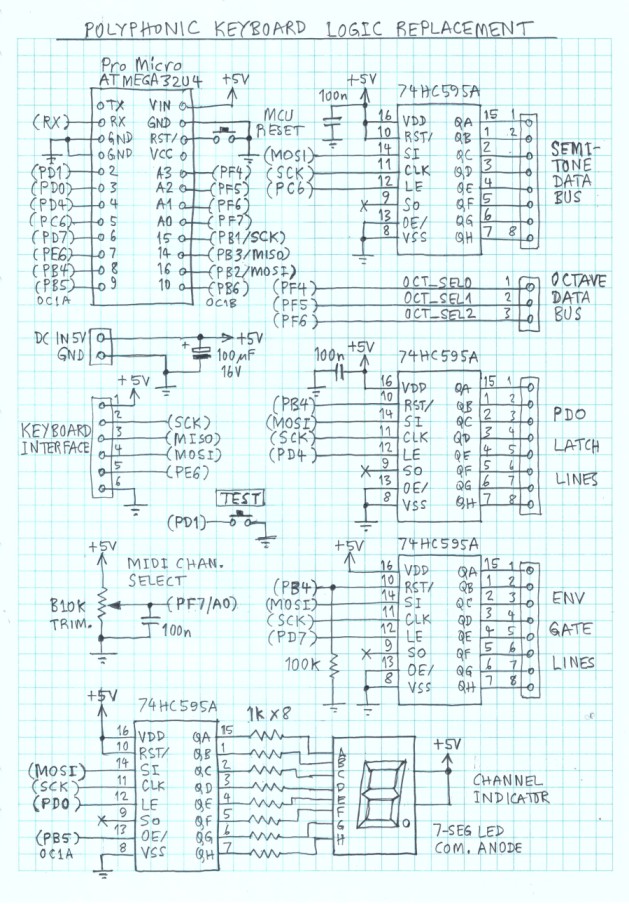 POLYPHONIC KEYBOARD LOGIC REPLACEMENT
Pro Micro
ATMEGA32U4
+5V
TX VIN
(RX) RX GND
GND RST/
GND VCC
(PD1) 2 A3 (PF4)
(PD0) 3 A2 (PF5)
(PD4) 4 A1 (PF6)
(PC6) 5 A0 (PF7)
(PD7) 6 15 (PB1/SCK)
(PE6) 7 14 (PB3/MISO)
(PB4) 8 16 (PB2/MOSI)
(PB5) 9 10 (PB6)
OC1A OC1B
MCU
RESET
+5V
100n
74HC595A
16 VDD QA 15 1
10 RST/ QB 1 2
(MOSI) 14 SI QC 2
(SCK) 11 CLK QD 3
(PC6) 12 LE QE 4
X 9 SO QF 5
13 OE/ QG 6
8 VSS QH 7 8
SEMI-
TONE
DATA
BUS
(PF4) OCT_SEL0 1
(PF5) OCT_SEL1 2
(PF6) OCT_SEL2 3
OCTAVE
DATA
BUS
DC IN 5V
GND
+5V
+
100µF
16V
KEYBOARD
INTERFACE
+5V
1
2 (SCK)
3 (MISO)
4 (MOSI)
5 (PE6)
6
TEST
(PD1)
+5V
100n
74HC595A
16 VDD QA 15 1
(PB4) 10 RST/ QB 1 2
(MOSI) 14 SI QC 2 3
(SCK) 11 CLK QD 3 4
(PD4) 12 LE QE 4 5
X 9 SO QF 5 6
13 OE/ QG 6 7
8 VSS QH 7 8
PDO
LATCH
LINES
+5V
MIDI CHAN.
SELECT
B10K
TRIM.
(PF7/A0)
100n
+5V
74HC595A
16 VDD QA 15 1
(PB4) 10 RST/ QB 1 2
(MOSI) 14 SI QC 2 3
(SCK) 11 CLK QD 3 4
(PD7) 12 LE QE 4 5
X 9 SO QF 5 6
13 OE/ QG 6 7
8 VSS QH 7 8
100K
ENV
GATE
LINES
+5V
74HC595A
1K X 8
16 VDD QA 15
10 RST/ QB 1
(MOSI) 14 SI QC 2
(SCK) 11 CLK QD 3
(PD0) 12 LE QE 4
X 9 SO QF 5
(PB5) 13 OE/ QG 6
OC1A 8 VSS QH 7
A
B
C
D
E
F
G
H
+5V
CHANNEL
INDICATOR
7-SEG LED
COM. ANODE